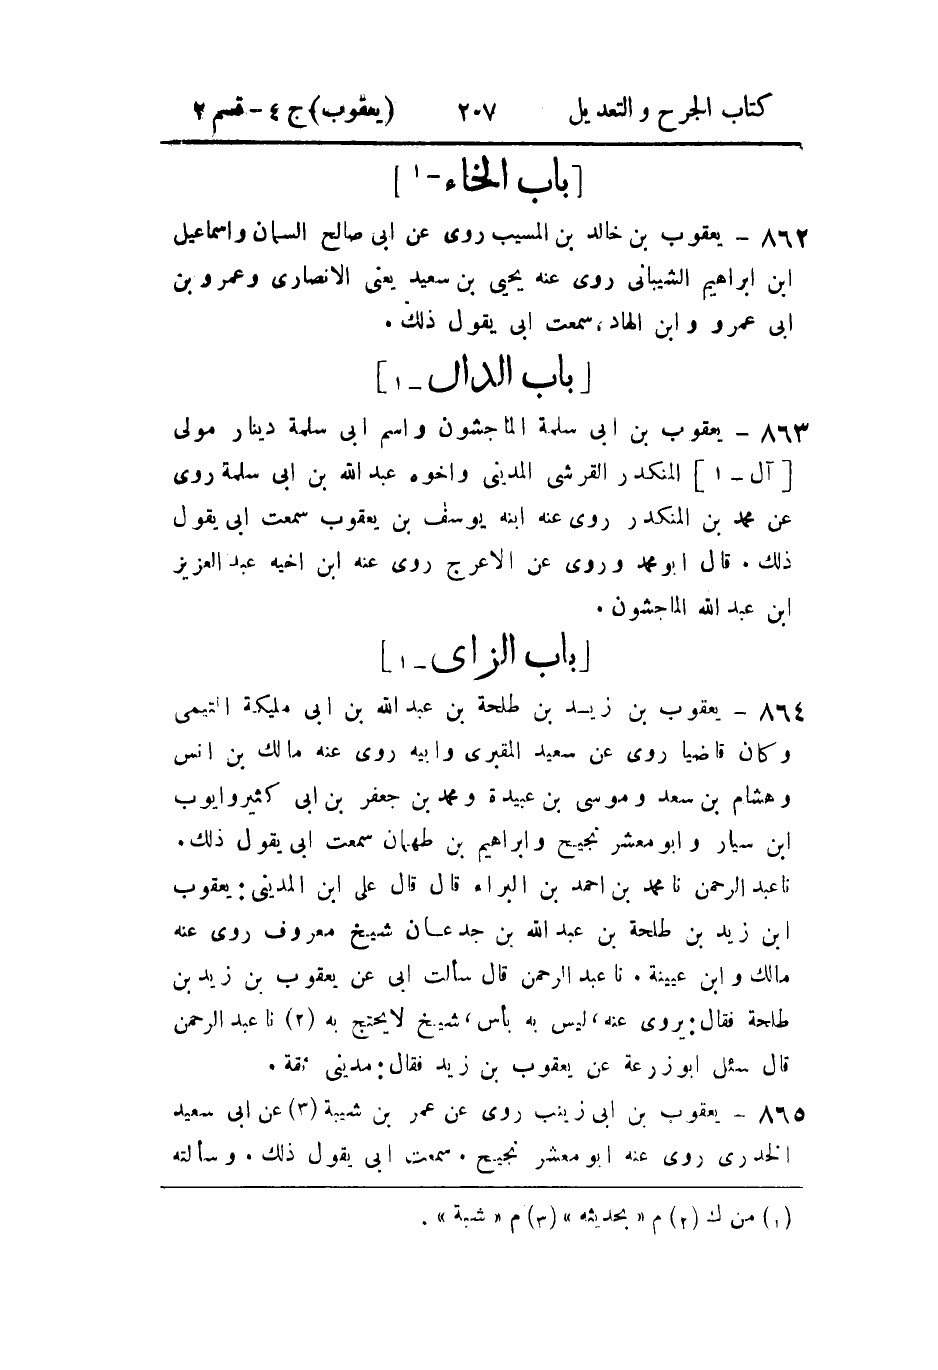 كتاب الجرح والتعديل ٢٠٧ (يعقوب) ج ٤ - قسم ٢
[باب الخاء - ١]
٨٦٢ - يعقوب بن خالد بن المسيب روى عن ابى صالح السمان واسماعيل
ابن ابراهيم الشيبانى روى عنه يحيى بن سعيد يعنى الانصارى وعمرو بن
ابى عمرو وابن الهاد، سمعت ابى يقول ذلك.
[باب الدال - ١]
٨٦٣ - يعقوب بن ابى سلمة الماجشون واسم ابى سلمة دينار مولى
[آل - ١] المنكدر القرشى المدينى واخوه عبد الله بن ابى سلمة روى
عن محمد بن المنكدر روى عنه ابنه يوسف بن يعقوب سمعت ابى يقول
ذلك. قال ابو محمد وروى عن الاعرج روى عنه ابن اخيه عبد العزيز
ابن عبد الله الماجشون.
[باب الزاى - ١]
٨٦٤ - يعقوب بن زيد بن طلحة بن عبد الله بن ابى مليكة التيمى
وكان قاضيا روى عن سعيد المقبرى وابيه روى عنه مالك بن انس
وهشام بن سعد وموسى بن عبيدة ومحمد بن جعفر بن ابى كثير وايوب
ابن سيار وابو معشر نجيح وابراهيم بن طهمان سمعت ابى يقول ذلك.
نا عبد الرحمن نا محمد بن احمد بن البراء قال قال على ابن المدينى: يعقوب
ابن زيد بن طلحة بن عبد الله بن جدعان شيخ معروف روى عنه
مالك وابن عيينة. نا عبد الرحمن قال سألت ابى عن يعقوب بن زيد بن
طلحة فقال: يروى عنه، ليس به بأس، شيخ لا يحتج به (٢) نا عبد الرحمن
قال سئل ابو زرعة عن يعقوب بن زيد فقال: مدينى ثقة.
٨٦٥ - يعقوب بن ابى زينب روى عن عمر بن شيبة (٣) عن ابى سعيد
الخدرى روى عنه ابو معشر نجيح. سمعت ابى يقول ذلك. وسألته
(١) من ك (٢) م « بحديثه » (٣) م « شبة ».